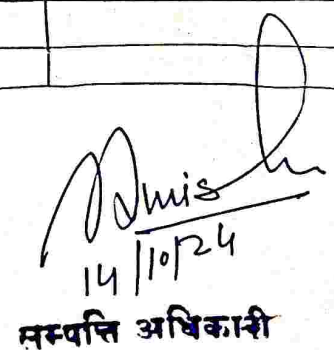 14/10/24
सम्पत्ति अधिकारी